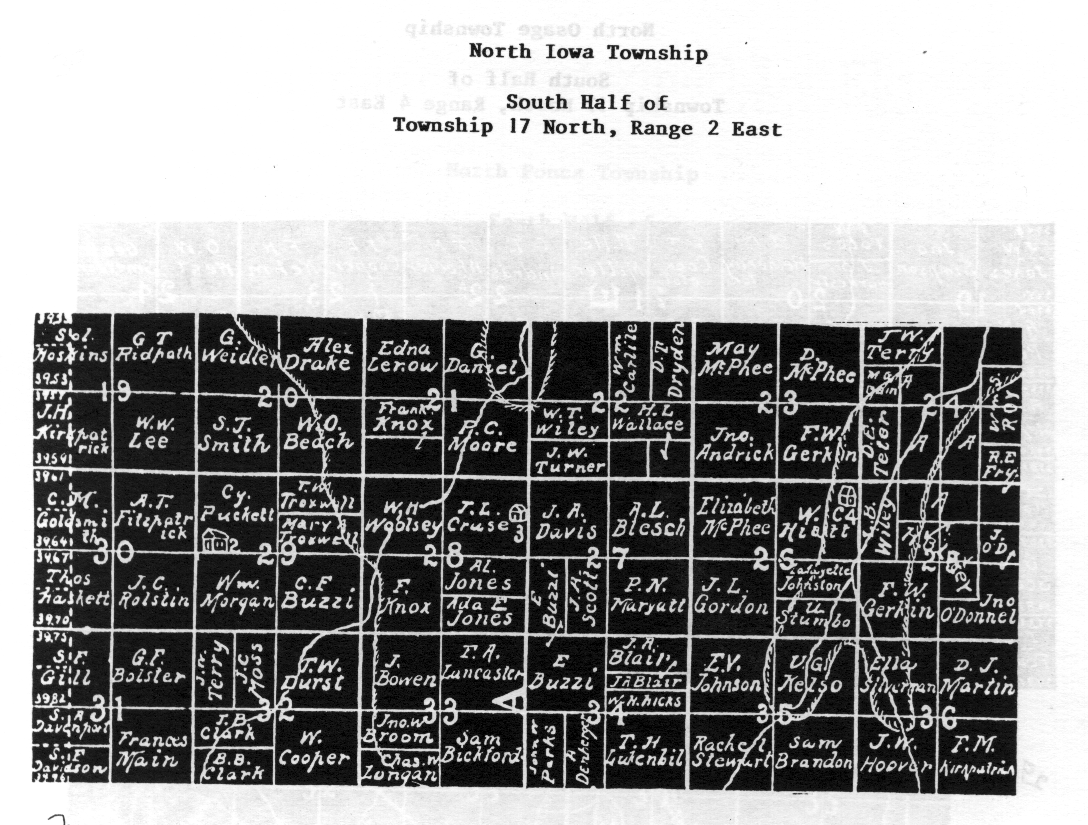 North Iowa Township
South Half of
Township 17 North, Range 2 East
39.53
Sol.
Hoskins
G T
Ridpath
G.
Weidler
Alex
Drake
Edna
Lerow
G.
Daniel
Wm
Carlile
D.T.
Dryden
May
McPhee
D.
McPhee
J.W.
Terry
Roy
19
20
21
22
23
24
J.H.
Kirkpat
rick
W.W.
Lee
S.J.
Smith
W.O.
Beach
Frank
Knox
P.C.
Moore
W.T.
Wiley
J.W.
Turner
H.L
Wallace
Jno.
Andrick
F.W.
Gerkin
D.E.
Teter
A
A
A
R.E
Fry.
39.61
C.M.
Goldsmi
th
39.64
A.T.
Fitzpatr
ick
Cy.
Puckett
T.W.
Troxwell
Mary
Troxwell
W.H
Woolsey
J.L.
Cruse
3
J.A.
Davis
A.L.
Blesch
Elizabeth
McPhee
W.
Hiatt
4
J.B.
Wiley
A
J.
O'D.
30
29
2
28
27
26
25
39.67
Thos
Thashett
39.70
J.C.
Rolstin
Wm.
Morgan
C.F
Buzzi
F.
Knox
Al.
Jones
Ada E
Jones
E
Buzzi
J.A.
Scott
P.N.
Maryatt
J.L.
Gordon
Lafayette
Johnston
Stumbo
F.W.
Gerkin
Jno
O'Donnel
39.75
S.F.
Gill
39.82
G.F.
Bolster
J.W.
Terry
J.C.
Moss
J.W.
Durst
J.
Bowen
F.A.
Lancaster
E
Buzzi
J.A.
Blair
J.A Blair
W.H. Hicks
E.V.
Johnson
U G
Kelso
Ella
Silverman
D.J.
Martin
31
32
33
34
35
36
S.A
Davenport
S.F
Davidson
Frances
Main
J.B.
Clark
B.B.
Clark
W.
Cooper
Jno.W
Broom
Chas.W
Longan
Sam
Bickford
John W
Parks
A
T.H
Lutenbil
Rachel
Stewart
Sam
Brandon
J.W.
Hoover
F.M.
Kirkpatrick